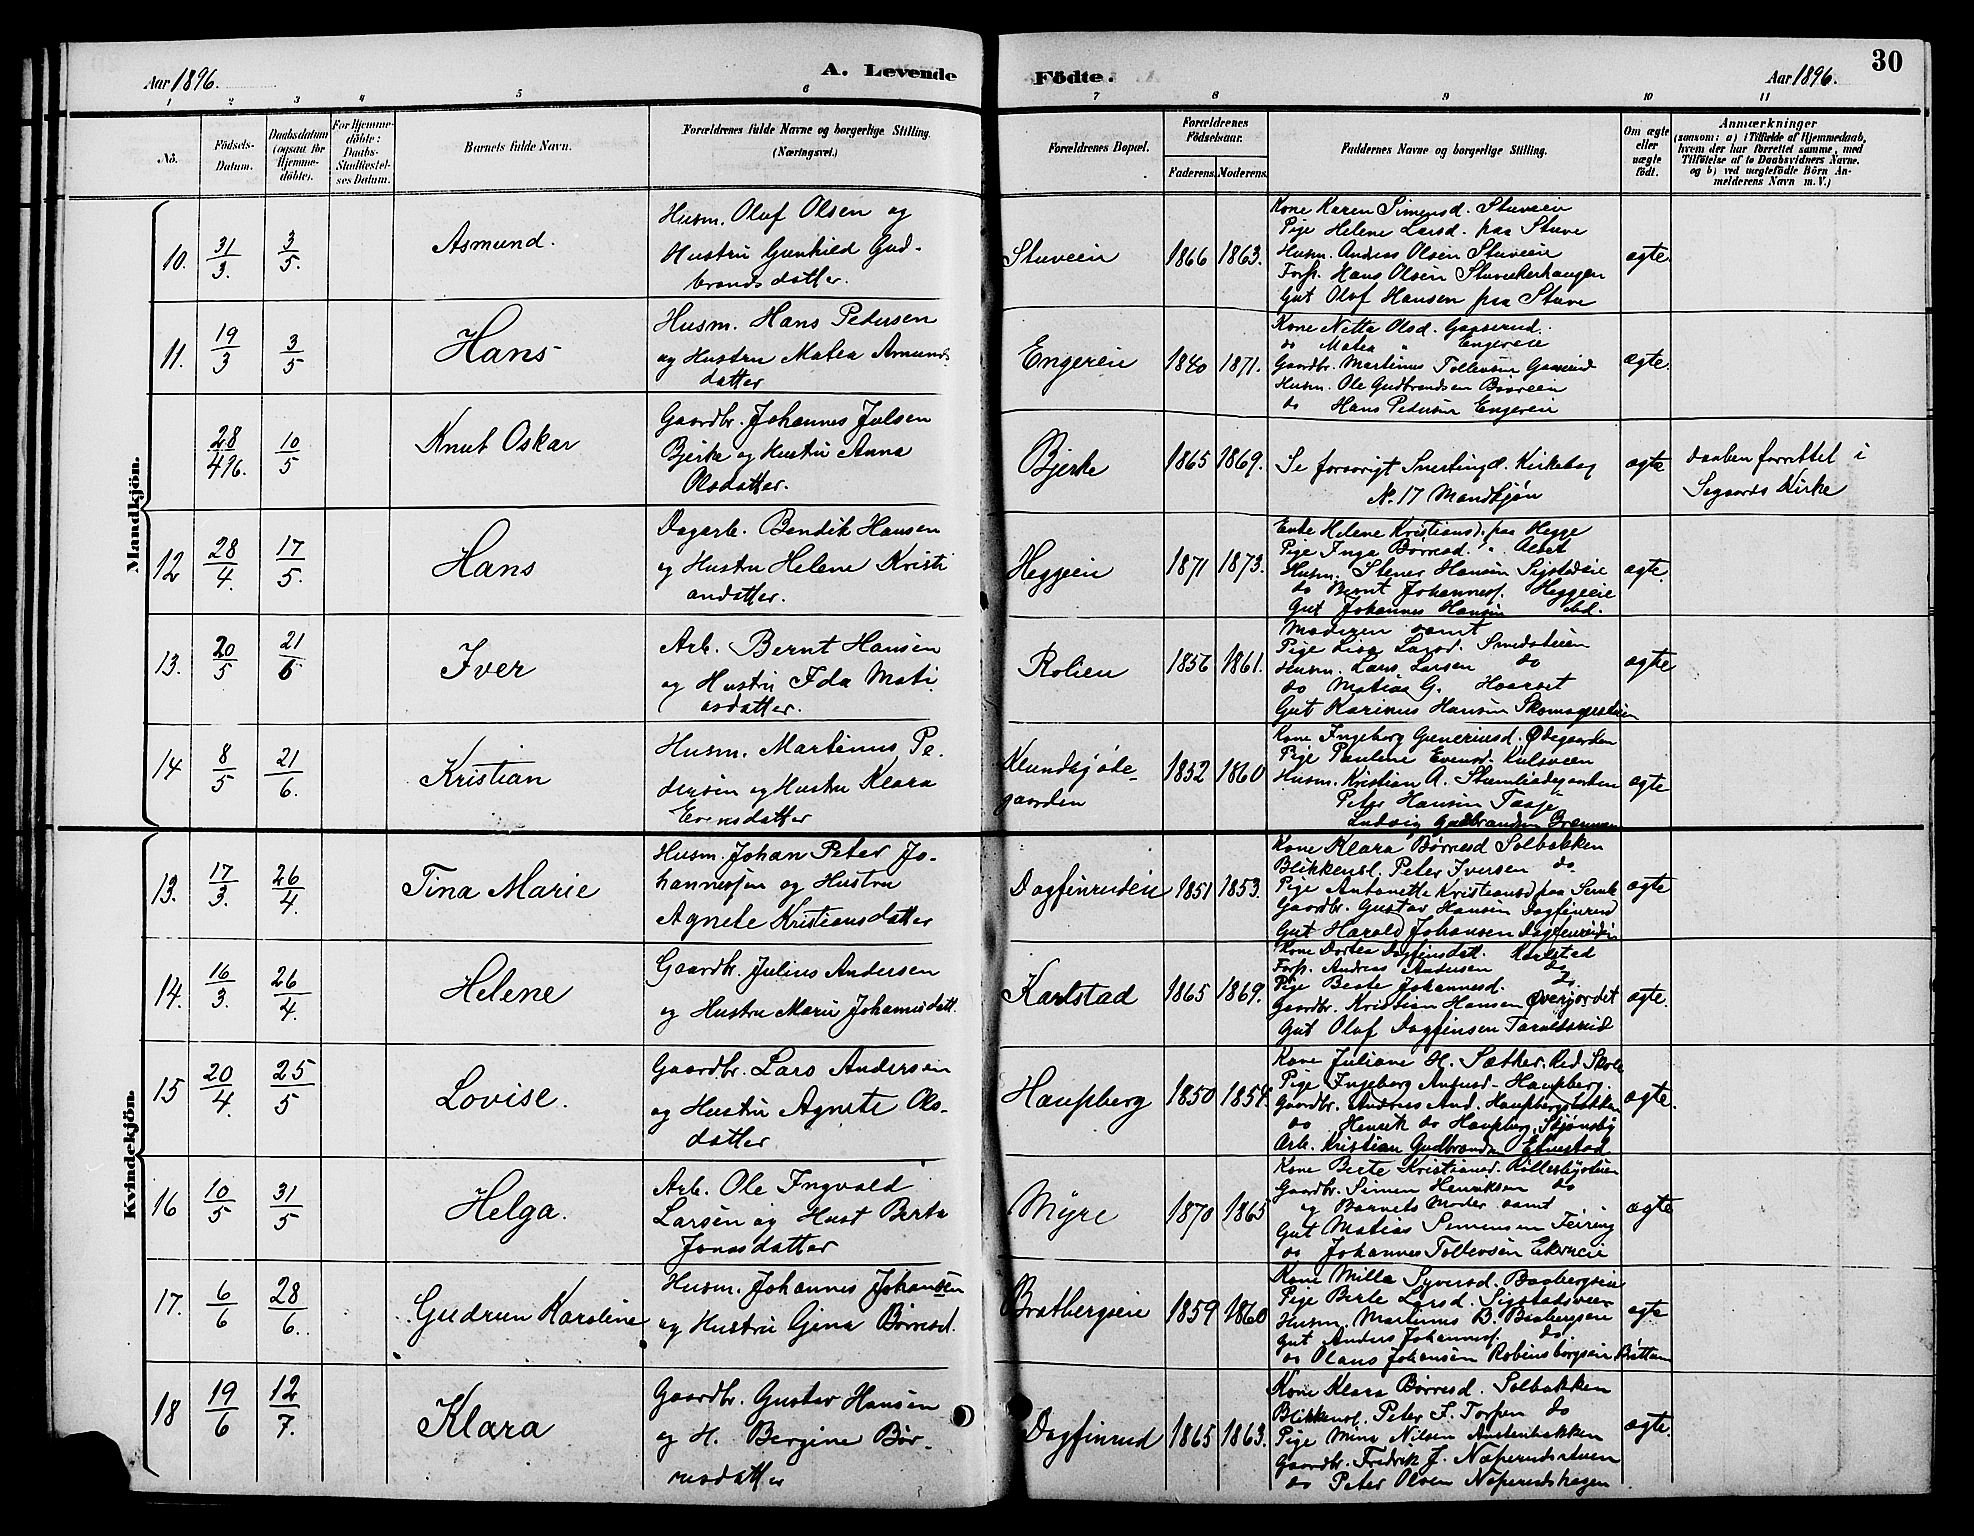 30
Aar 1896.
A. Levende
Födte.
Aar 1896.
1 2 3 4 5 6 7 8 9 10 11
No.
Födsels-
Datum.
Daabsdatum
(ogsaa for
Hjemme-
döbte).
For Hjemme-
döbte:
Daabs-
Stadfæstel-
ses Datum.
Barnets fulde Navn.
Forældrenes fulde Navne og borgerlige Stilling.
(Næringsvei.)
Forældrenes Bopæl.
Forældrenes
Födselsaar.
Faderens. Moderens.
Faddernes Navne og borgerlige Stilling.
Om ægte
eller
uægte
født.
Anmærkninger
(saasom: a) i Tilfælde af Hjemmedaab,
hvem der har forrettet samme, med
Tilföielse af to Daabsvidners Navne.
og b) ved uægtefödte Börn An-
melderens Navn m. V.)
Mandkjön.
10. 31/3. 3/5. Asmund.
Husm. Oluf Olsen og
Hustru Gunhild Gud-
brandsdatter.
Stuveien 1866 1863.
Kone Karen Simensd. Stuveien
Pige Helene Larsd. paa Stuve
Husm. Andreas Olsen Stuveien
Forp. Hans Olsen Stuvekerhaugen
Gut Olaf Hansen paa Stuve
ægte.
11. 19/3 3/5 Hans
Husm. Hans Pedersen
og Hustru Matea Amunds
datter
Engereie 1840 1871.
Kone Netta Olsd. Gaaserud.
do Matea " Engereie
Gaardbr. Martinus Tollevsen
Husm. Ole Gudbrandsen
do Hans Pedersen Engereie
ægte.
28/4 96. 10/5 Knut Oskar
Gaardbr. Johannes Julsen
Bjerke og Hustru Anna
Olsdatter.
Bjerke 1865 1869.
Se forøvrigt Snertingd. Kirkebog
No. 17 Mandkjøn
ægte
Daaben forrettet i
Segaards Kirke
12 28/4. 17/5. Hans
Dagarb. Bendik Hansen
og Hustru Helene Kristi
andatter.
Heggeien 1871 1873.
Enke Helene Kristiansd. paa Hegge
Pige Inga Børresd. " Alset
Husm. Stener Hansen Sigstadeie
do Bernt Johanness. Heggeeie
Gut Johannes Hansen ibd.
ægte.
13. 20/5 21/6 Iver
Arb. Bernt Hansen
og Hustru Ida Mati
asdatter.
Rolien 1856 1861.
Moderen samt
Pige Lisa Larsd. Smedstuen
Husm. Lars Larsen do
do Matias G. Haarset
Gut Karinus Hansen Skomagerstuen
ægte
14 8/5 21/6. Kristian
Husm. Martinus Pe-
dersen og Hustru Klara
Evensdatter
Klundbjøde-
gaarden
1852 1860
Kone Ingeborg Generiusd. Ødegaarden
Pige Pauline Evensd. Kulsveen
Husm. Kristian A. Stumliødegaarden
Peter Hansen Taaje
Ludvig Gudbrandsen Brennum
ægte
Kvindekjön.
13. 17/3. 26/4. Tina Marie
Husm. Johan Peter Jo-
hannessen og Hustru
Agnete Kristiansdatter
Dagfinrudeie 1851 1853.
Kone Klara Børresd Solbakken
Blikkensl. Peter Iversen do.
Pige Antonette Kristiansd paa
Gaardbr. Gustav Hansen Dagfinrud
Gut Harald Johansen Dagfinrudeie
ægte
14. 16/3. 26/4. Helene
Gaardbr. Julius Andersen
og Hustru Marie Johannisdatt.
Karlstad 1865 1869.
Kone Dortea Dagfinsdatt. Karlstad
Forp. Andreas Andersen do
Pige Beate Johannesd. do
Gaardbr. Kristian Hansen Øverjordet
Gut Olaf Dagfinsen
ægte.
15 20/4. 25/5 Lovise.
Gaardbr. Lars Andersen
og Hustru Agnete Ols-
datter
Haugsberg 1850 1854.
Kone Juliane H. Sæther. Red. Skole
Pige Ingeborg Haugsberg.
Gaardbr. Andreas And. Haugsbergsbakken
do Henrik do Haugsberg, Skjønsby
Arb. Kristian Gudbrandsen Elnestad
ægte.
16 10/5 31/5 Helga.
Arb. Ole Ingvald
Larsen og Hust Berta
Jonasdatter
Myre 1870 1865
Kone Berte Kristiansd.
Gaardbr. Simen Henriksen do
og Barnets Moder samt
Gut Matias Simensen Feiring
do Johannes Tollevsen
ægte
17. 6/6 28/6. Gudrun Karoline
Husm. Johannes Johansen
og Hustru Gina Børresd.
Bratbergeie 1859 1860
Kone Milla Syversd. Braabergeie
Pige Berte Larsd. Sigstadsveen
Husm. Martinus B. Braabergeie
Gut Anders Johanness. do
do Olaus Johansen Robensborgeie Brøttum
ægte
18 19/6 12/7. Klara
Gaardbr. Gustav Hansen
og H. Bergine Bør-
resdatter
Dagfinrud 1865 1863.
Kone Klara Børresd. Solbakken
Blikkensl. Peter I. Torpen do
Pige Mina Nilsen Austenbakken
Gaardbr. Fredrik J. Næperudstuen
do Peter Olsen Næperudshagen
ægte.